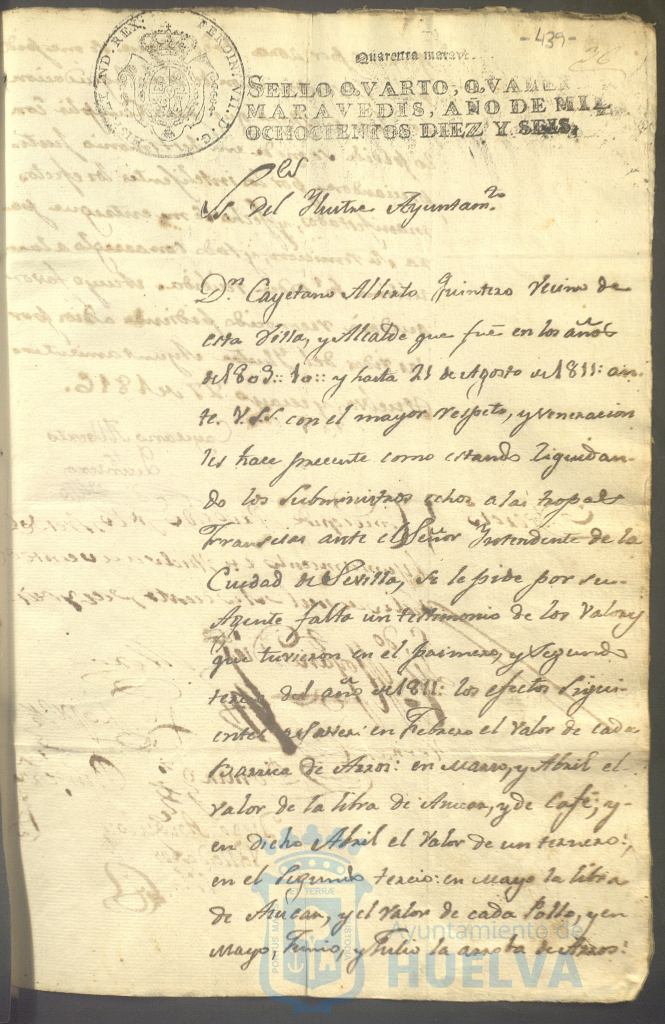 -439-
FERDIN. VII. D. G. HISP. ET IND. REX.
Quarenta marave
SELLO QVARTO, QVAREN
MARAVEDIS, AÑO DE MIL
OCHOCIENTOS DIEZ Y SEIS,
S.res del Ylustre Ayuntam.to
D.n Cayetano Alberto Quintero Vecino de
esta Villa, y Alcalde que fué en los años
de 1809:: 10:: y hasta 21 de Agosto de 1811: an-
te. V.SS. con el mayor respeto, y veneracion
les hace precente como estando liquidan-
do los subministros echos a las tropas
Francesas ante el Señor Yntendente de la
Ciudad de Sevilla, se le pide por su
Agente falta un testimonio de los valores
que tuvieron en el primero, y Segundo
tercio del año de 1811: los efectos Sigui-
entes a saver: en Febrero el valor de cada
Barrica de Arros: en Marzo, y Abril el
valor de la libra de Azucar, y de Café, y
en dicho Abril el valor de un ternero:,
en el Segundo tercio: en Mayo la libra
de Azucar, y el valor de cada Pollo, y en
Mayo, Junio, y Julio la arroba de Arros:
Ayuntamiento de
HUELVA